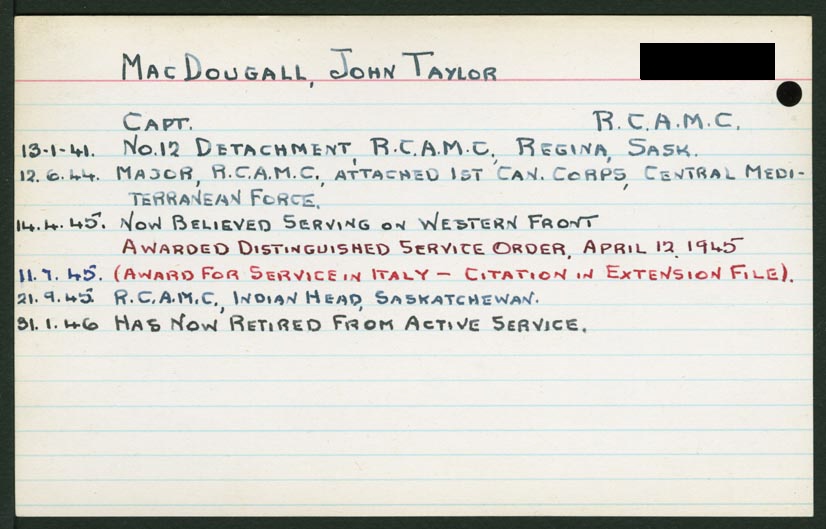 MacDougall, John Taylor
Capt. R.C.A.M.C.
13-1-41. No.12 Detachment, R.C.A.M.C, Regina, Sask.
12.6.44. Major, R.C.A.M.C., attached 1st Can. Corps, Central Medi-
terranean Force.
14.4.45. Now Believed Serving on Western Front
Awarded Distinguished Service Order, April 12, 1945
11.7.45. (Award for Service in Italy – Citation in Extension File).
21.9.45. R.C.A.M.C., Indian Head, Saskatchewan.
31.1.46 Has Now Retired From Active Service.